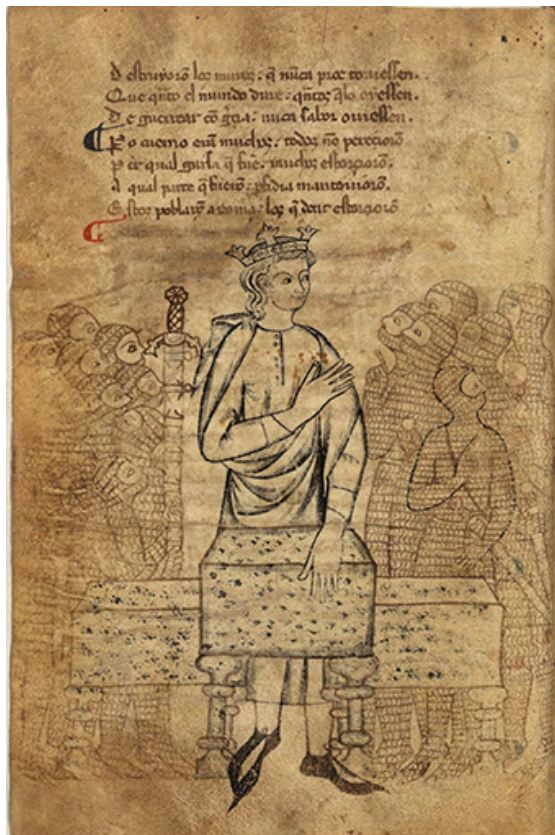 Destruyorõ los muros: q̃ nũca pros touiessen.
Que q̃nto el mundo dure: q̃ntos q̃lo oyessen.
De guerrear cõ gr̃cia: nũca sabor ouiessen.
Pero cuemo erã muchos: todos nõ pereciorõ
Por qual guisa q̃ fue: muchos estorciorõ.
A qual parte q̃ fuerõ: mantouiorõ.
Estos poblarõ a roma: los q̃ dent estorciorõ